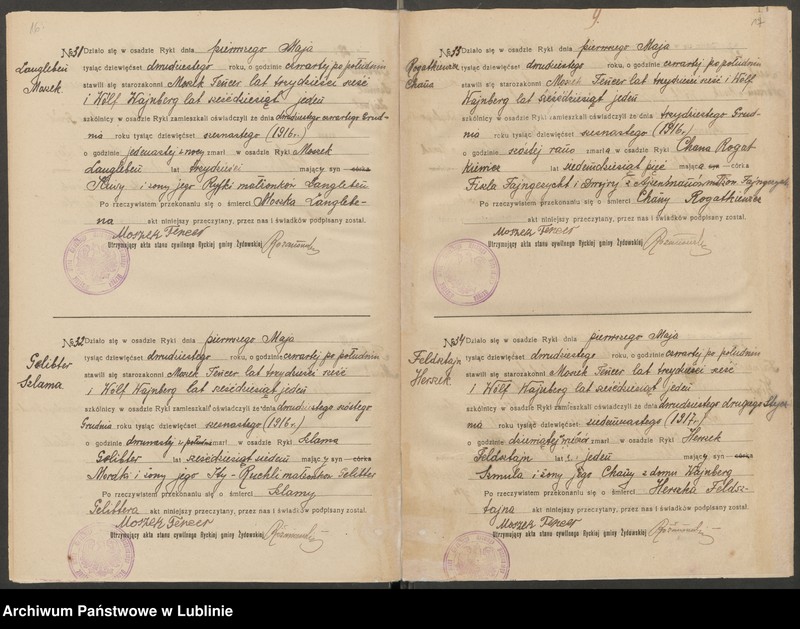 16
№ 31 Działo się w osadzie Ryki dnia pierwszego Maja
Langleben
Moszek
tysiąc dziewięćset dwudziestego roku, o godzinie czwartej po południu
stawili się starozakonni Moszek Fencer lat trzydzieści sześć
i Wolf Wajnberg lat sześćdziesiąt jeden
szkólnicy w osadzie Ryki zamieszkali oświadczyli że dnia dwudziestego czwartego Grud-
nia roku tysiąc dziewięćset szesnastego (1916 r.)
o godzinie jedenastej z nocy zmarł w osadzie Ryki Moszek
Langleben lat trzydzieści mający syn córka
i żony jego Ryfki małżonków Langleben
Po rzeczywistem przekonaniu się o śmierci Moszka Langlebe-
na akt niniejszy przeczytany, przez nas i świadków podpisany został.
Moszek Fencer
Utrzymujący akta stanu cywilnego Ryckiej gminy Żydowskiej
№ 32 Działo się w osadzie Ryki dnia pierwszego Maja
Gelibter
Szlama
tysiąc dziewięćset dwudziestego roku, o godzinie czwartej po południu
stawili się starozakonni Moszek Fencer lat trzydzieści sześć
i Wolf Wajnberg lat sześćdziesiąt jeden
szkólnicy w osadzie Ryki zamieszkali oświadczyli że dnia dwudziestego szóstego
Grudnia roku tysiąc dziewięćset szesnastego (1916 r.)
o godzinie dwunastej w południe zmarł w osadzie Ryki Szlama
Gelibter lat sześćdziesiąt siedem mający syn córka
i żony jego Ity-Ruchli małżonków Gelibter
Po rzeczywistem przekonaniu się o śmierci Szlamy
Gelibtera akt niniejszy przeczytany, przez nas i świadków podpisany został.
Moszek Fencer
Utrzymujący akta stanu cywilnego Ryckiej gminy Żydowskiej
9.
17
№ 33 Działo się w osadzie Ryki dnia pierwszego Maja
Rogatkiewicz
Chana
tysiąc dziewięćset dwudziestego roku, o godzinie czwartej po południu
stawili się starozakonni Moszek Fencer lat trzydzieści sześć i Wolf
Wajnberg lat sześćdziesiąt jeden
szkólnicy w osadzie Ryki zamieszkali oświadczyli że dnia trzydziestego Grud-
nia roku tysiąc dziewięćset szesnastego (1916 r.)
o godzinie szóstej rano zmarła w osadzie Ryki Chana Rogat
kiewicz lat siedemdziesiąt pięć mająca syn córka
Fiszla Fajngezycht i
Po rzeczywistem przekonaniu się o śmierci Chany Rogatkiewicz
akt niniejszy przeczytany, przez nas i świadków podpisany został.
Moszek Fencer
Utrzymujący akta stanu cywilnego Ryckiej gminy Żydowskiej
№ 34 Działo się w osadzie Ryki dnia pierwszego Maja
Feldsztajn
Herszek
tysiąc dziewięćset dwudziestego roku, o godzinie czwartej po południu
stawili się starozakonni Moszek Fencer lat trzydzieści sześć
i Wolf Wajnberg lat sześćdziesiąt jeden
szkólnicy w osadzie Ryki zamieszkali oświadczyli że dnia dwudziestego drugiego Stycz
nia roku tysiąc dziewięćset siedemnastego (1917 r.)
o godzinie zmarł w osadzie Ryki Herszek
Feldsztajn lat jeden mający syn córka
Szmula i żony jego Chany z domu Wajnberg
Po rzeczywistem przekonaniu się o śmierci Herszka Feldsz-
tajna akt niniejszy przeczytany, przez nas i świadków podpisany został.
Moszek Fencer
Utrzymujący akta stanu cywilnego Ryckiej gminy Żydowskiej
Archiwum Państwowe w Lublinie